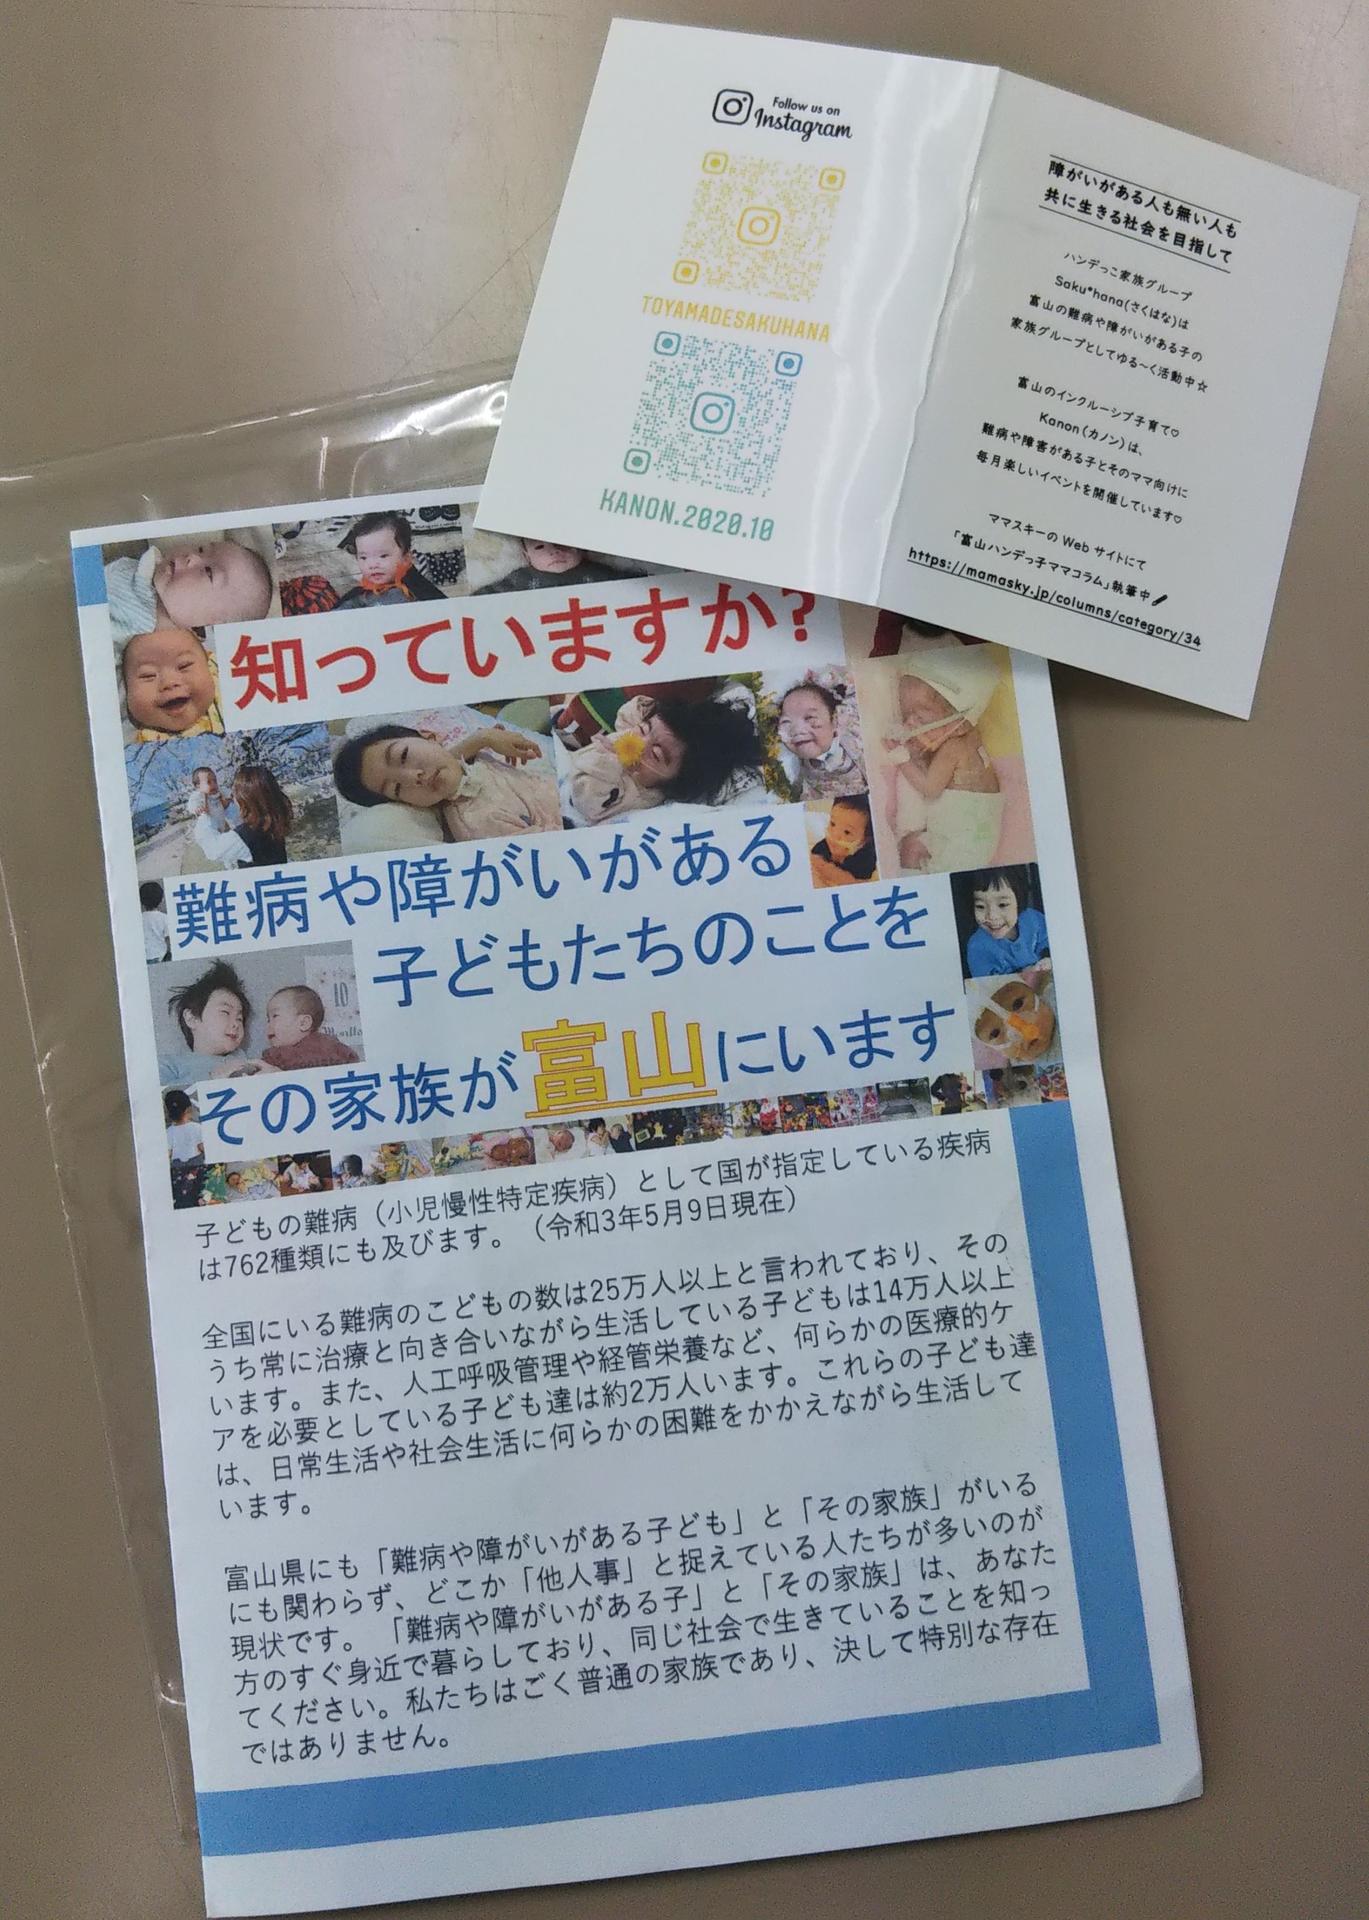 Follow us on
Instagram
TOYAMADESAKUHANA
KANON.2020.10
障がいがある人も無い人も
共に生きる社会を目指して
ハンデっこ家族グループ
Saku*hana(さくはな)は
富山の難病や障がいがある子の
家族グループとしてゆる〜く活動中☆
富山のインクルーシブ子育て♡
Kanon(カノン)は、
難病や障害がある子とそのママ向けに
毎月楽しいイベントを開催しています♡
ママスキーの Web サイトにて
「富山ハンデっ子ママコラム」執筆中
https://mamasky.jp/columns/category/34
知っていますか?
難病や障がいがある
子どもたちのことを
その家族が富山にいます
子どもの難病（小児慢性特定疾病）として国が指定している疾病
は762種類にも及びます。（令和3年5月9日現在）
全国にいる難病のこどもの数は25万人以上と言われており、その
うち常に治療と向き合いながら生活している子どもは14万人以上
います。また、人工呼吸管理や経管栄養など、何らかの医療的ケ
アを必要としている子ども達は約2万人います。これらの子ども達
は、日常生活や社会生活に何らかの困難をかかえながら生活して
います。
富山県にも「難病や障がいがある子ども」と「その家族」がいる
にも関わらず、どこか「他人事」と捉えている人たちが多いのが
現状です。「難病や障がいがある子」と「その家族」は、あなた
方のすぐ身近で暮らしており、同じ社会で生きていることを知っ
てください。私たちはごく普通の家族であり、決して特別な存在
ではありません。